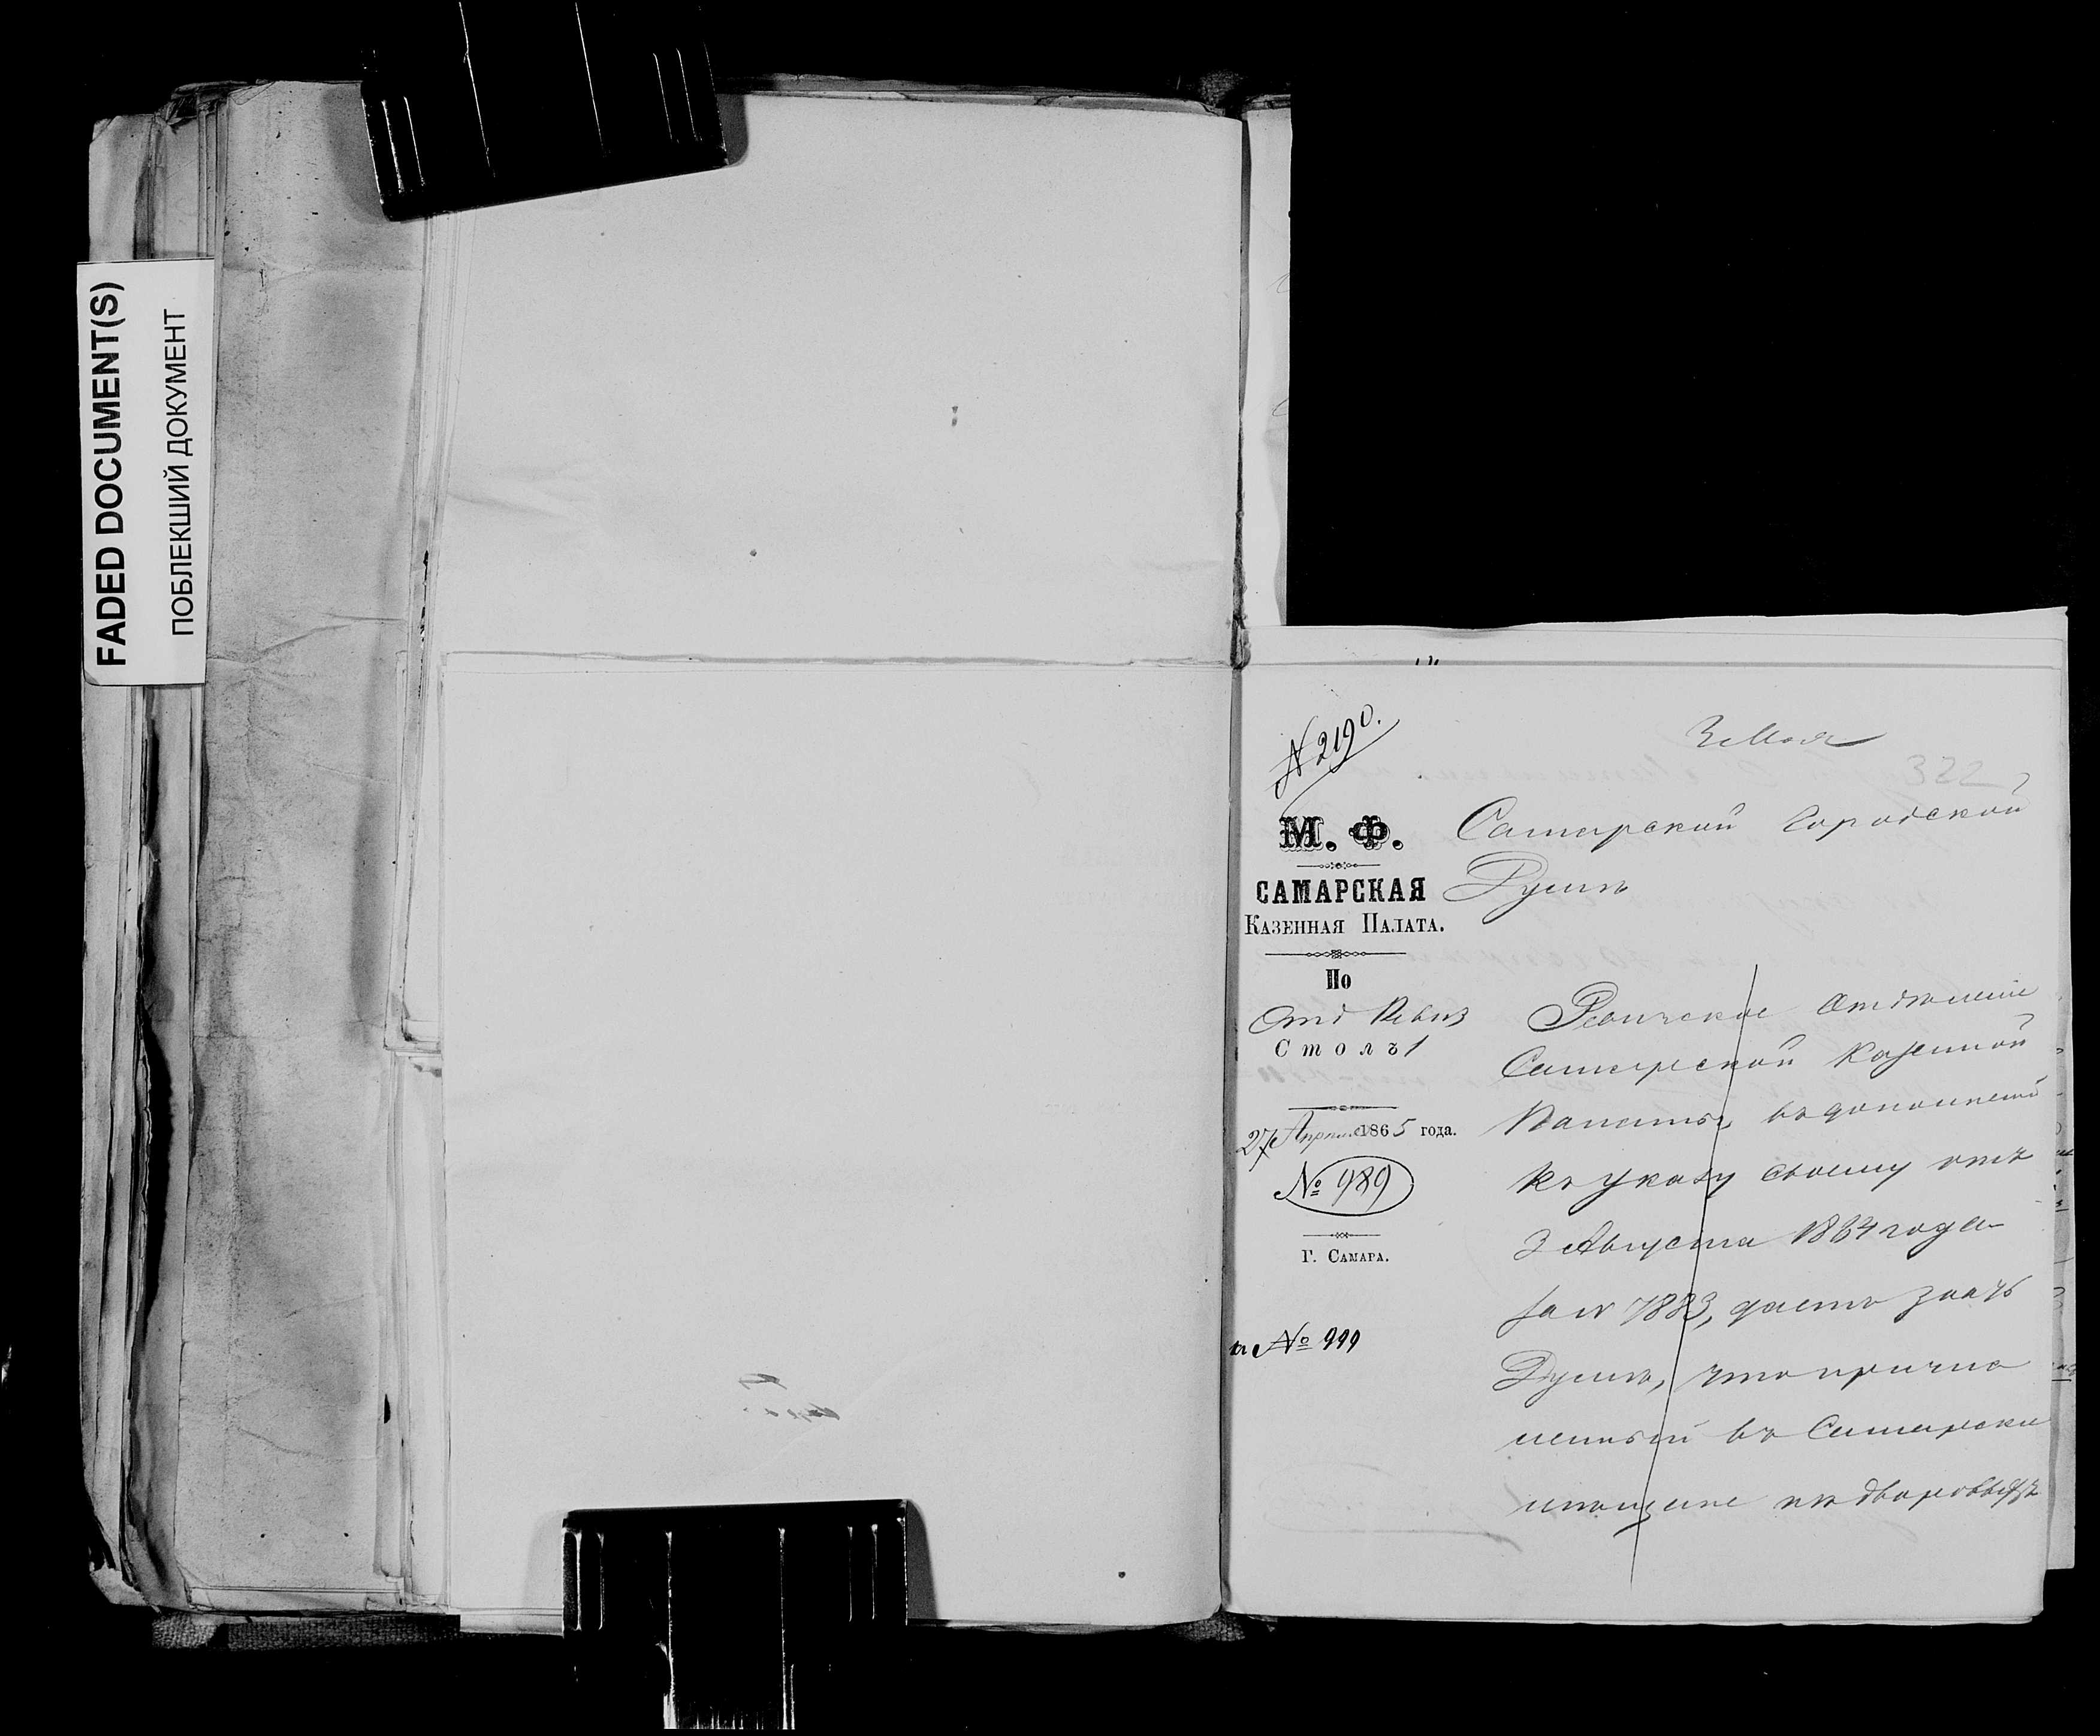 FADED DOCUMENT(S)
ПОБЛЕКШИЙ ДОКУМЕНТ
№ 2190.
3 Мая
322
М. Ф.
САМАРСКАЯ
КАЗЕННАЯ ПАЛАТА.
По
Отд Ревиз
Столъ 1
27 Апреля 1865 года.
№ 989
Г. САМАРА.
№ 999
Самарской Городской
Думѣ
Ревизское Отдѣленіе
Самарской Казенной
Палаты, въ дополненіе
къ указу своему отъ
3 Августа 1864 года
за № 7883, даетъ знать
Думѣ, что причис
ленный въ Самарскіе
мѣщане изъ дворовыхъ